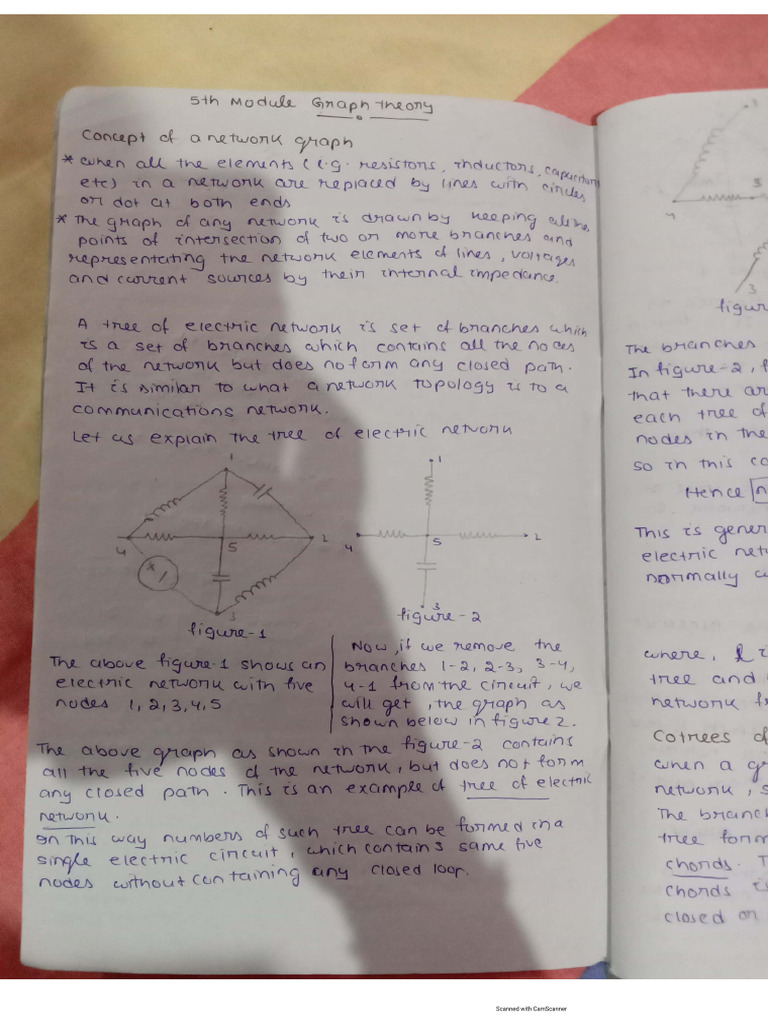 5th Module Graph theory
Concept of a network graph
* when all the elements (e.g. resistors, inductors, capacitors
etc) in a network are replaced by lines with circles
or dot at both ends
* The graph of any network is drawn by keeping all the
points of intersection of two or more branches and
representating the network elements of lines, voltages
and current sources by their internal impedance.
A tree of electric network is set of branches which
is a set of branches which contains all the nodes
of the network but does no form any closed path.
It is similar to what a network topology is to a
communications network.
Let us explain the tree of electric network
1
4
5
2
3
figure-1
1
4
5
2
3
figure-2
The above figure-1 shows an
electric network with five
nodes 1, 2, 3, 4, 5
Now, if we remove the
branches 1-2, 2-3, 3-4,
4-1 from the circuit, we
will get, the graph as
shown below in figure 2.
The above graph as shown in the figure-2 contains
all the five nodes of the network, but does not form
any closed path. This is an example of tree of electric
network.
In this way numbers of such tree can be formed in a
single electric circuit, which contains same five
nodes without containing any closed loop.
4
3
3
figur
The branches
In figure-2,
that there ar
each tree of
nodes in the
so in this ca
Hence n
This is gener
electric net
normally
where, l i
tree and
network f
Cotrees of
when a g
network, s
The branc
tree form
chords. T
chords is
closed or
Scanned with CamScanner